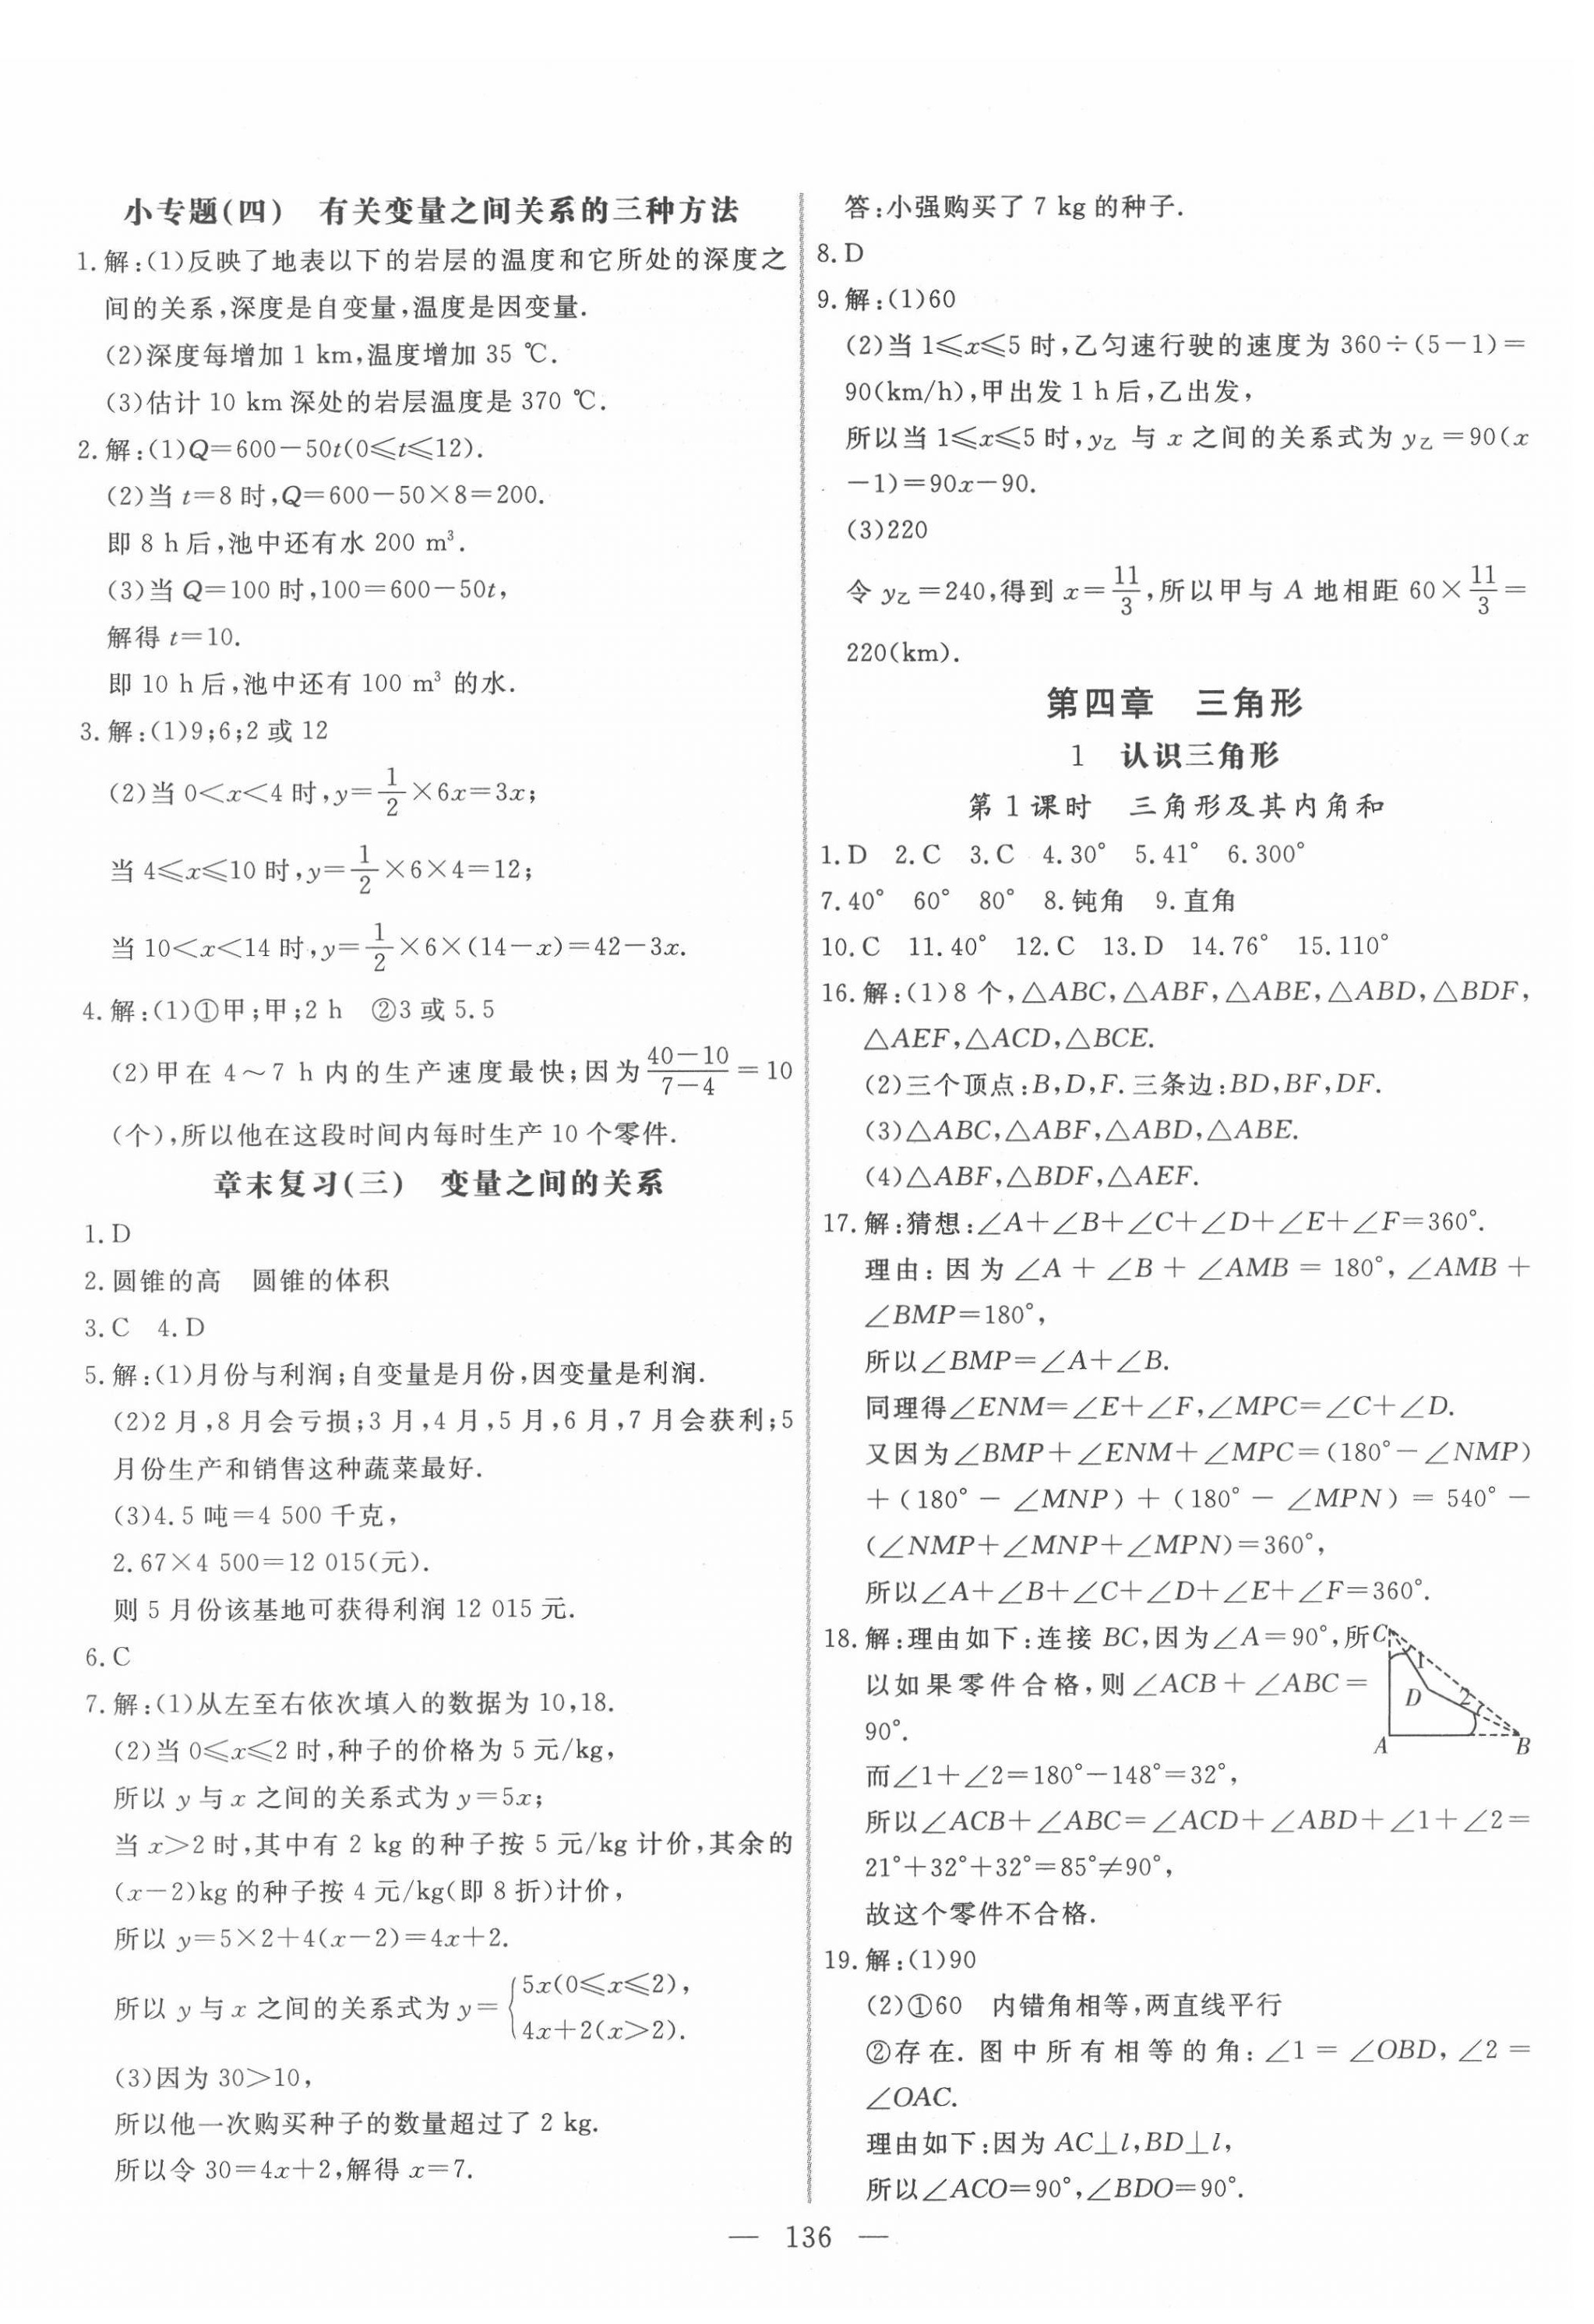 小专题(四)　有关变量之间关系的三种方法
1.解:(1)反映了地表以下的岩层的温度和它所处的深度之
间的关系,深度是自变量,温度是因变量.
(2)深度每增加 1 km,温度增加 35 ℃.
(3)估计 10 km 深处的岩层温度是 370 ℃.
2.解:(1)Q=600-50t(0≤t≤12).
(2)当 t=8 时,Q=600-50×8=200.
即 8 h 后,池中还有水 200 m³.
(3)当 Q=100 时,100=600-50t,
解得 t=10.
即 10 h 后,池中还有 100 m³ 的水.
3.解:(1)9;6;2 或 12
(2)当 0<x<4 时,y=1/2×6x=3x;
当 4≤x≤10 时,y=1/2×6×4=12;
当 10<x<14 时,y=1/2×6×(14-x)=42-3x.
4.解:(1)①甲;甲;2 h　②3 或 5.5
(2)甲在 4～7 h 内的生产速度最快;因为(40-10)/(7-4)=10
(个),所以他在这段时间内每时生产 10 个零件.
章末复习(三)　变量之间的关系
1.D
2.圆锥的高　圆锥的体积
3.C　4.D
5.解:(1)月份与利润;自变量是月份,因变量是利润.
(2)2 月,8 月会亏损;3 月,4 月,5 月,6 月,7 月会获利;5
月份生产和销售这种蔬菜最好.
(3)4.5 吨=4 500 千克,
2.67×4 500=12 015(元).
则 5 月份该基地可获得利润 12 015 元.
6.C
7.解:(1)从左至右依次填入的数据为 10,18.
(2)当 0≤x≤2 时,种子的价格为 5 元/kg,
所以 y 与 x 之间的关系式为 y=5x;
当 x>2 时,其中有 2 kg 的种子按 5 元/kg 计价,其余的
(x-2)kg 的种子按 4 元/kg(即 8 折)计价,
所以 y=5×2+4(x-2)=4x+2.
所以 y 与 x 之间的关系式为 y={5x(0≤x≤2),
4x+2(x>2).
(3)因为 30>10,
所以他一次购买种子的数量超过了 2 kg.
所以令 30=4x+2,解得 x=7.
答:小强购买了 7 kg 的种子.
8.D
9.解:(1)60
(2)当 1≤x≤5 时,乙匀速行驶的速度为 360÷(5-1)=
90(km/h),甲出发 1 h 后,乙出发,
所以当 1≤x≤5 时,y乙 与 x 之间的关系式为 y乙=90(x
-1)=90x-90.
(3)220
令 y乙=240,得到 x=11/3,所以甲与 A 地相距 60×11/3=
220(km).
第四章　三角形
1　认识三角形
第 1 课时　三角形及其内角和
1.D　2.C　3.C　4.30°　5.41°　6.300°
7.40°　60°　80°　8.钝角　9.直角
10.C　11.40°　12.C　13.D　14.76°　15.110°
16.解:(1)8 个,△ABC,△ABF,△ABE,△ABD,△BDF,
△AEF,△ACD,△BCE.
(2)三个顶点:B,D,F.三条边:BD,BF,DF.
(3)△ABC,△ABF,△ABD,△ABE.
(4)△ABF,△BDF,△AEF.
17.解:猜想:∠A+∠B+∠C+∠D+∠E+∠F=360°.
理由:因为∠A+∠B+∠AMB=180°,∠AMB+
∠BMP=180°,
所以∠BMP=∠A+∠B.
同理得∠ENM=∠E+∠F,∠MPC=∠C+∠D.
又因为∠BMP+∠ENM+∠MPC=(180°-∠NMP)
+(180°-∠MNP)+(180°-∠MPN)=540°-
(∠NMP+∠MNP+∠MPN)=360°,
所以∠A+∠B+∠C+∠D+∠E+∠F=360°.
18.解:理由如下:连接 BC,因为∠A=90°,所
以如果零件合格,则∠ACB+∠ABC=
90°.
C
1
D
2
A
B
而∠1+∠2=180°-148°=32°,
所以∠ACB+∠ABC=∠ACD+∠ABD+∠1+∠2=
21°+32°+32°=85°≠90°,
故这个零件不合格.
19.解:(1)90
(2)①60　内错角相等,两直线平行
②存在.图中所有相等的角:∠1=∠OBD,∠2=
∠OAC.
理由如下:因为 AC⊥l,BD⊥l,
所以∠ACO=90°,∠BDO=90°.
— 136 —